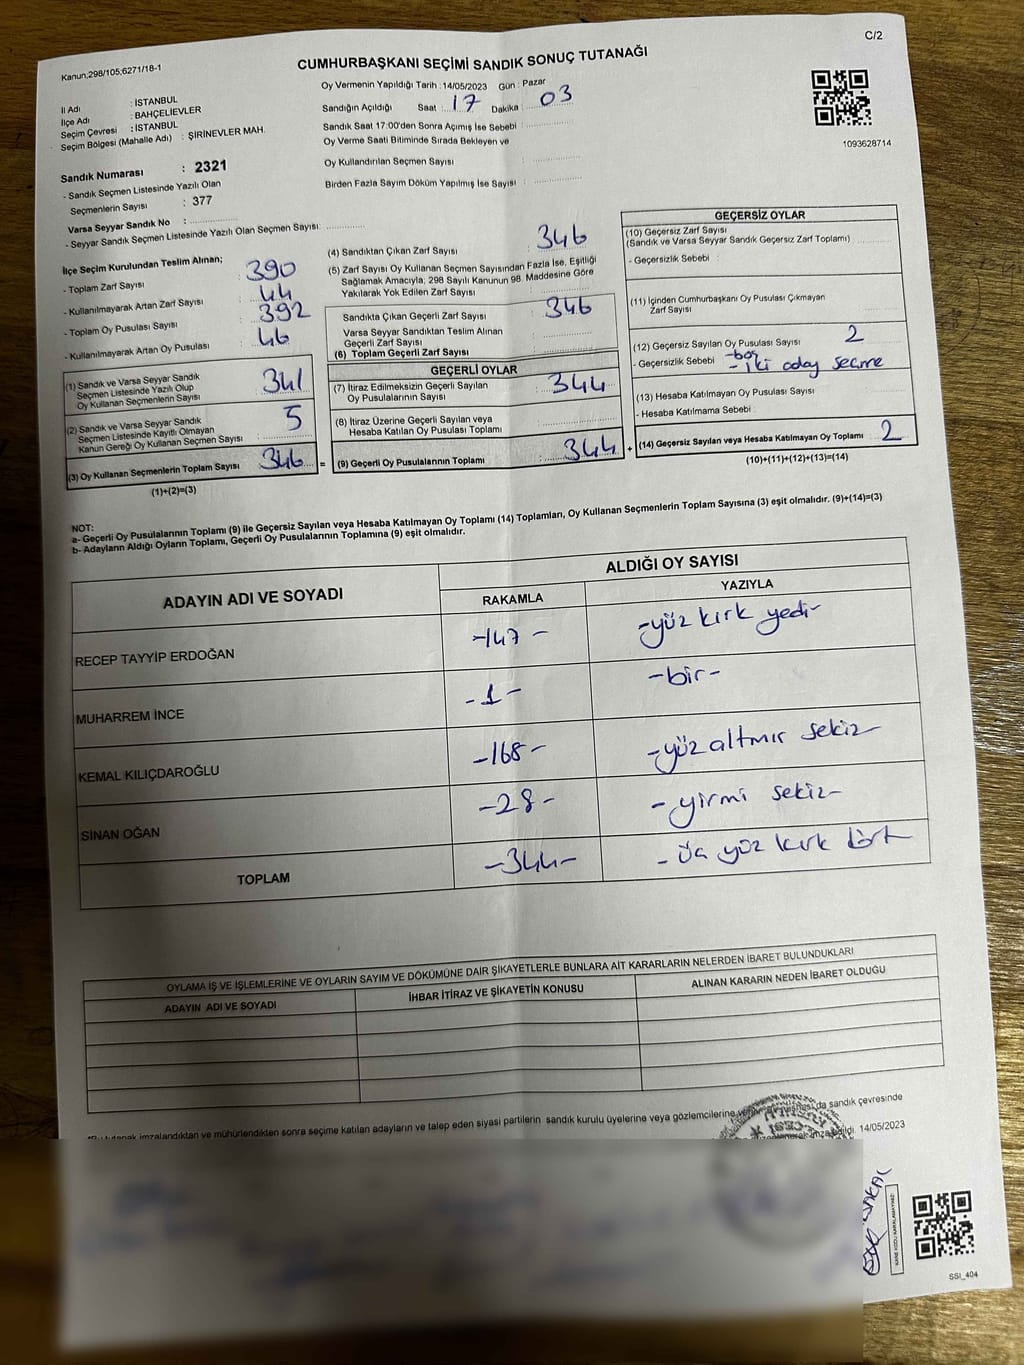 C/2
Kanun,298/105,6271/18-1
CUMHURBAŞKANI SEÇİMİ SANDIK SONUÇ TUTANAĞI
Oy Vermenin Yapıldığı Tarih : 14/05/2023 Gün : Pazar
Sandığın Açıldığı Saat : 17 Dakika 03
Sandık Saat 17:00'den Sonra Açımış İse Sebebi :
Oy Verme Saati Bitiminde Sırada Bekleyen ve
Oy Kullandırılan Seçmen Sayısı :
Birden Fazla Sayım Döküm Yapılmış İse Sayısı :
1093628714
İl Adı : İSTANBUL
İlçe Adı : BAHÇELİEVLER
Seçim Çevresi : İSTANBUL
Seçim Bölgesi (Mahalle Adı) : ŞİRİNEVLER MAH.
Sandık Numarası : 2321
- Sandık Seçmen Listesinde Yazılı Olan
Seçmenlerin Sayısı : 377
Varsa Seyyar Sandık No :
- Seyyar Sandık Seçmen Listesinde Yazılı Olan Seçmen Sayısı:
İlçe Seçim Kurulundan Teslim Alınan;
- Toplam Zarf Sayısı : 390
- Kullanılmayarak Artan Zarf Sayısı : 44
- Toplam Oy Pusulası Sayısı : 392
- Kullanılmayarak Artan Oy Pusulası : 46
(1) Sandık ve Varsa Seyyar Sandık
Seçmen Listesinde Yazılı Olup
Oy Kullanan Seçmenlerin Sayısı : 341
(2) Sandık ve Varsa Seyyar Sandık
Seçmen Listesinde Kayıtlı Olmayan
Kanun Gereği Oy Kullanan Seçmen Sayısı : 5
(3) Oy Kullanan Seçmenlerin Toplam Sayısı : 346 =
(1)+(2)=(3)
(4) Sandıktan Çıkan Zarf Sayısı : 346
(5) Zarf Sayısı Oy Kullanan Seçmen Sayısından Fazla İse, Eşitliği
Sağlamak Amacıyla, 298 Sayılı Kanunun 98. Maddesine Göre
Yakılarak Yok Edilen Zarf Sayısı :
Sandıkta Çıkan Geçerli Zarf Sayısı : 346
Varsa Seyyar Sandıktan Teslim Alınan
Geçerli Zarf Sayısı :
(6) Toplam Geçerli Zarf Sayısı :
GEÇERLİ OYLAR
(7) İtiraz Edilmeksizin Geçerli Sayılan
Oy Pusulasının Sayısı : 344
(8) İtiraz Üzerine Geçerli Sayılan veya
Hesaba Katılan Oy Pusulası Toplamı :
(9) Geçerli Oy Pusulalarının Toplamı : 344 +
GEÇERSİZ OYLAR
(10) Geçersiz Zarf Sayısı
(Sandık ve Varsa Seyyar Sandık Geçersiz Zarf Toplamı)
- Geçersizlik Sebebi :
(11) İçinden Cumhurbaşkanı Oy Pusulası Çıkmayan
Zarf Sayısı :
(12) Geçersiz Sayılan Oy Pusulası Sayısı : 2
- Geçersizlik Sebebi -boş
- iki aday seçme
(13) Hesaba Katılmayan Oy Pusulası Sayısı :
- Hesaba Katılmama Sebebi :
(14) Geçersiz Sayılan veya Hesaba Katılmayan Oy Toplamı : 2
(10)+(11)+(12)+(13)=(14)
NOT:
a- Geçerli Oy Pusulalarının Toplamı (9) ile Geçersiz Sayılan veya Hesaba Katılmayan Oy Toplamı (14) Toplamları, Oy Kullanan Seçmenlerin Toplam Sayısına (3) eşit olmalıdır. (9)+(14)=(3)
b- Adayların Aldığı Oyların Toplamı, Geçerli Oy Pusulalarının Toplamına (9) eşit olmalıdır.
ADAYIN ADI VE SOYADI
ALDIĞI OY SAYISI
RAKAMLA YAZIYLA
RECEP TAYYİP ERDOĞAN -147- -yüz kırk yedi-
MUHARREM İNCE -1- -bir-
KEMAL KILIÇDAROĞLU -168- -yüz altmış sekiz-
SİNAN OĞAN -28- -yirmi sekiz-
TOPLAM -344- -üç yüz kırk dört
OYLAMA İŞ VE İŞLEMLERİNE VE OYLARIN SAYIM VE DÖKÜMÜNE DAİR ŞİKAYETLERLE BUNLARA AİT KARARLARIN NELERDEN İBARET BULUNDUKLARI
ADAYIN ADI VE SOYADI İHBAR İTİRAZ VE ŞİKAYETİN KONUSU ALINAN KARARIN NEDEN İBARET OLDUĞU
imzalandıktan ve mühürlendikten sonra seçime katılan adayların ve talep eden siyasi partilerin sandık kurulu üyelerine veya gözlemcilerine sandık çevresinde
14/05/2023
SSI_404